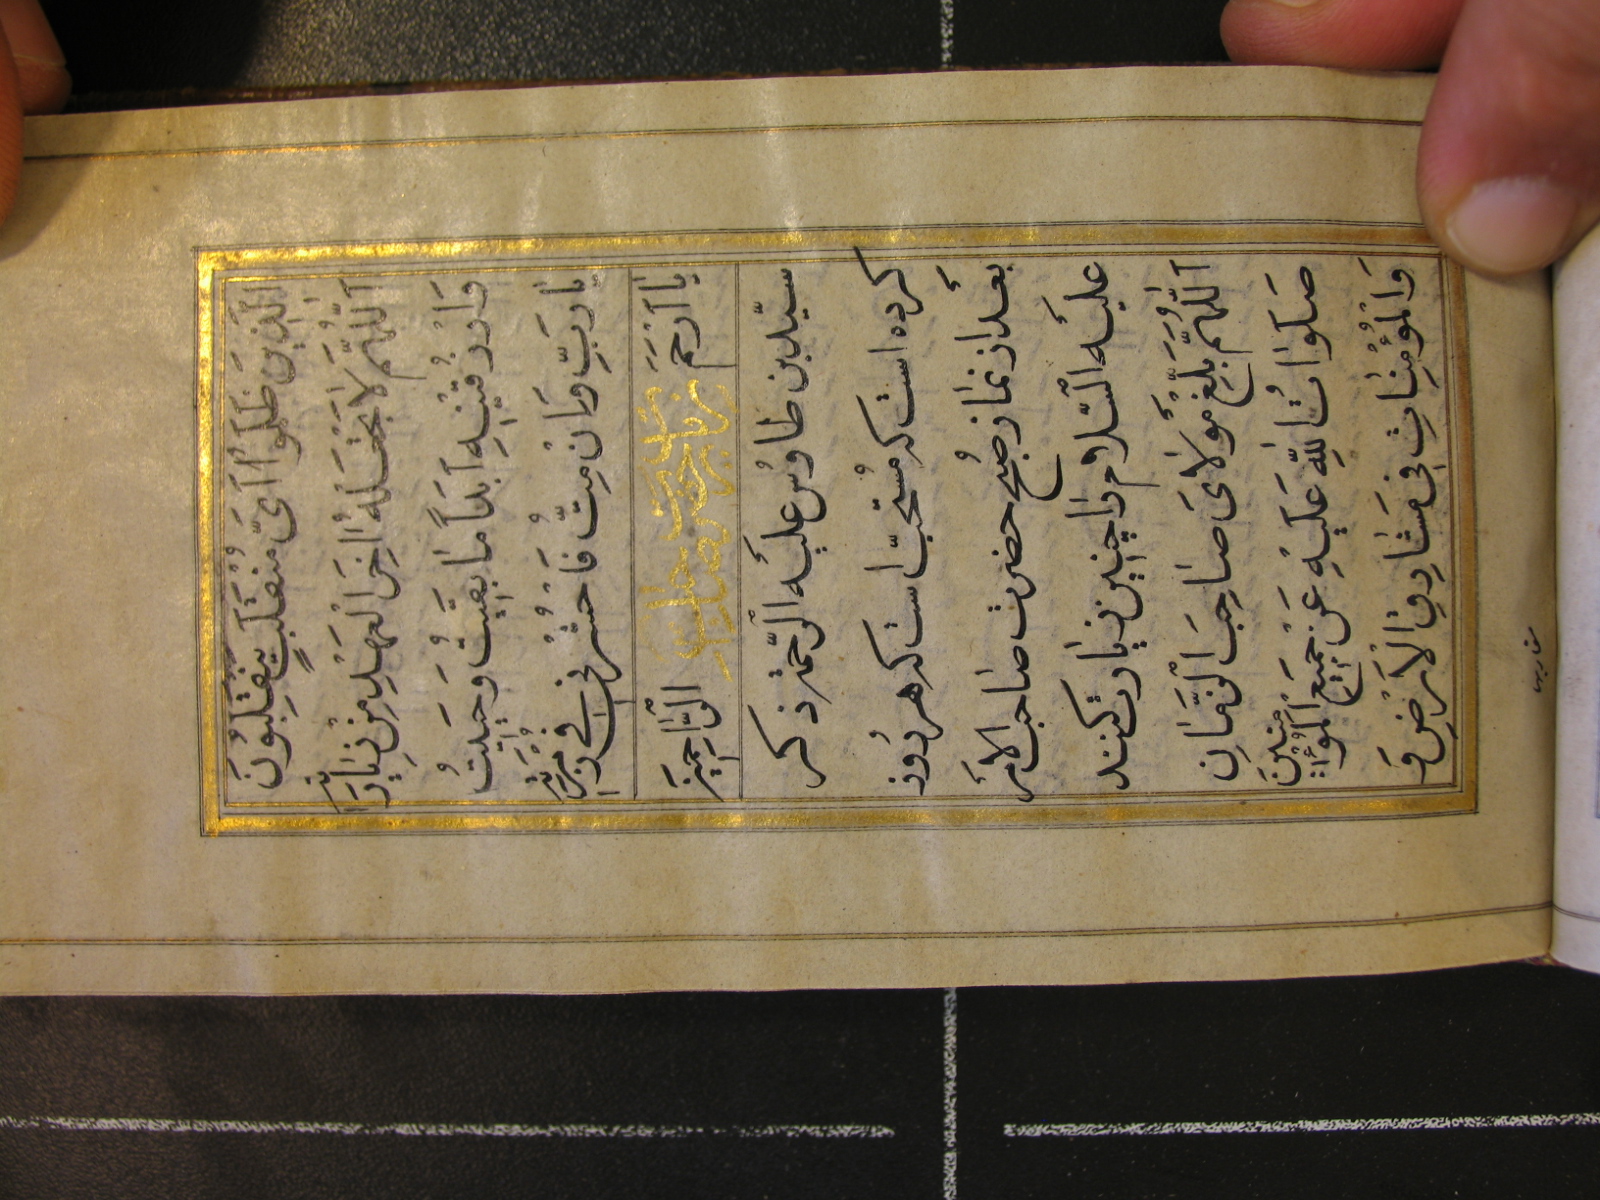 الَّذِينَ ظَلَمُوا اَىَّ مُنْقَلَبٍ يَنْقَلِبُونَ
اَللّٰهُمَّ لَا تَجْعَلْهُ اٰخِرَ الْعَهْدِ مِنْ زِيَارَتِهِ
وَارْزُقْنِيهِ اَبَدًا مَا بَقِيتُ وَحَيِيتُ
يَا رَبِّ وَاِنْ مِتُّ فَاحْشُرْنِى فِى زُمْرَتِهِ
يَا اَرْحَمَ الرَّاحِمِينَ
زيارت حضرت صاحب
سيّد بن طاوُس عليه الرّحمة ذكر
كرده است كه مُستحبّ است كه هر روز
بعد از نماز صُبح حضرت صاحب الامر
عليه السّلام را چنين زيارت كنند
اَللّٰهُمَّ بَلِّغْ مَوْلَاىَ صَاحِبَ الزَّمَانِ
صَلَوَاتُ اللهِ عَلَيْهِ عَنْ جَمِيعِ الْمُؤْمِنِينَ
وَالْمُؤْمِنَاتِ فِى مَشَارِقِ الْاَرْضِ وَ
مغاربها